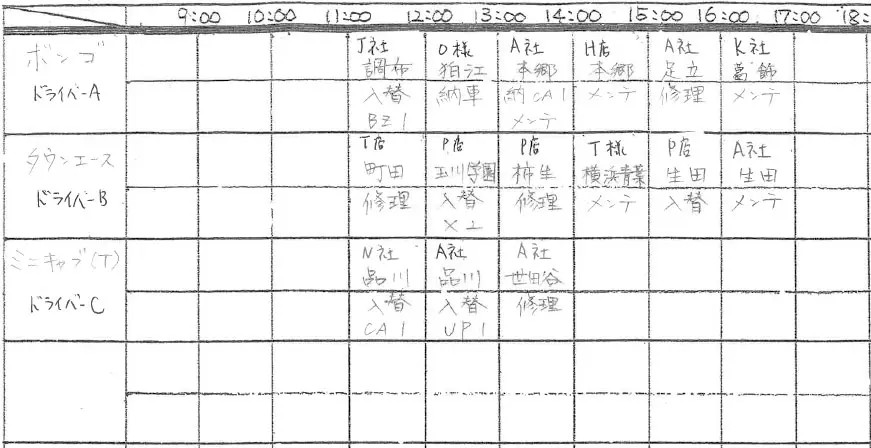 9:00 10:00 11:00 12:00 13:00 14:00 15:00 16:00 17:00 18:
ボンゴ J社 O様 A社 H店 A社 K社
調布 狛江 本郷 本郷 足立 葛飾
ドライバーA 入替 納車 納CA1 メンテ 修理 メンテ
BZ1 メンテ
タウンエース T店 P店 P店 T様 P店 A社
町田 玉川学園 柿生 横浜青葉 生田 生田
ドライバーB 修理 入替 修理 メンテ 入替 メンテ
ミニキャブ(T) N社 A社 A社
品川 品川 世田谷
ドライバーC 入替 入替 修理
CA1 UP1